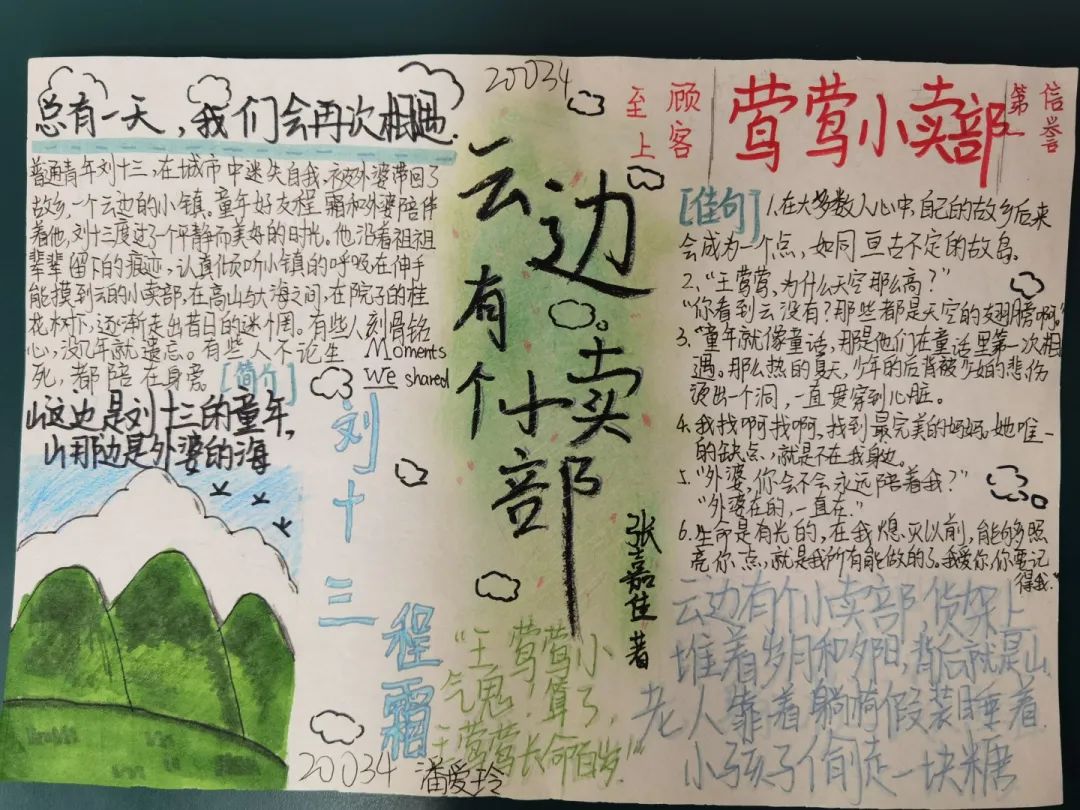 总有一天，我们会再次相遇.
普通青年刘十三，在城市中迷失自我，被外婆带回了
故乡，一个云边的小镇。童年好友程霜和外婆陪伴
着他，刘十三度过了一个平静而美好的时光。他沿着祖祖
辈辈留下的痕迹，认真倾听小镇的呼吸，在伸手
能摸到云的小卖部，在高山与大海之间，在院子的桂
花树下，逐渐走出昔日的迷惘。有些人刻骨铭
心，没几年就遗忘。有些人不论生
死，都陪在身旁。
[简介]
Moments
We shared
山这边是刘十三的童年，
山那边是外婆的海
刘十三
程霜
20034
潘爱玲
20034
云边有个小卖部
张嘉佳 著
"王莺莺小
气鬼！算了，
王莺莺长命百岁！"
顾客
至上
莺莺小卖部
信誉
第一
[佳句]
1.在大多数人心中，自己的故乡后来
会成为一个点，如同亘古不定的故岛。
2."王莺莺，为什么天空那么高？"
"你看到云没有？那些都是天空的翅膀啊。"
3."童年就像童话，那是他们在童话里第一次相
遇。那么热的夏天，少年的后背被少女的悲伤
烫出一个洞，一直贯穿到心脏。
4.我找啊找啊，找到最完美的妈妈，她唯一
的缺点，就是不在我身边。
5."外婆，你会不会永远陪着我？"
"外婆在的，一直在."
6.生命是有光的，在我熄灭以前，能够照
亮你一点，就是我所有能做的了。我爱你，你要记
得我."
云边有个小卖部，货架上
堆着岁月和夕阳，背后就是山
老人靠着躺椅假装睡着.
小孩子偷走一块糖